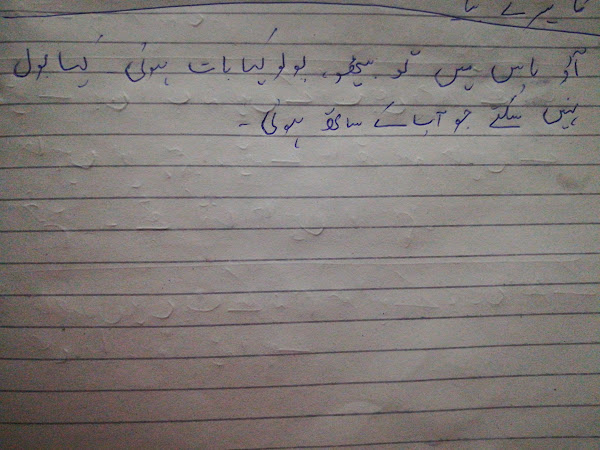 آؤ پاس میں تو بیٹھو، بولو کیا بات ہوئی۔ کیا بول
نہیں سکتے جو آپ کے ساتھ ہوئی۔